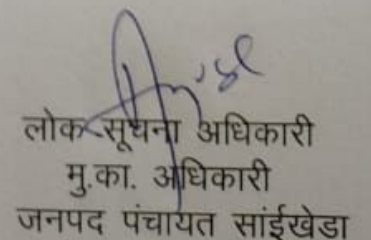 लोक सूचना अधिकारी
मु.का. अधिकारी
जनपद पंचायत सांईखेडा